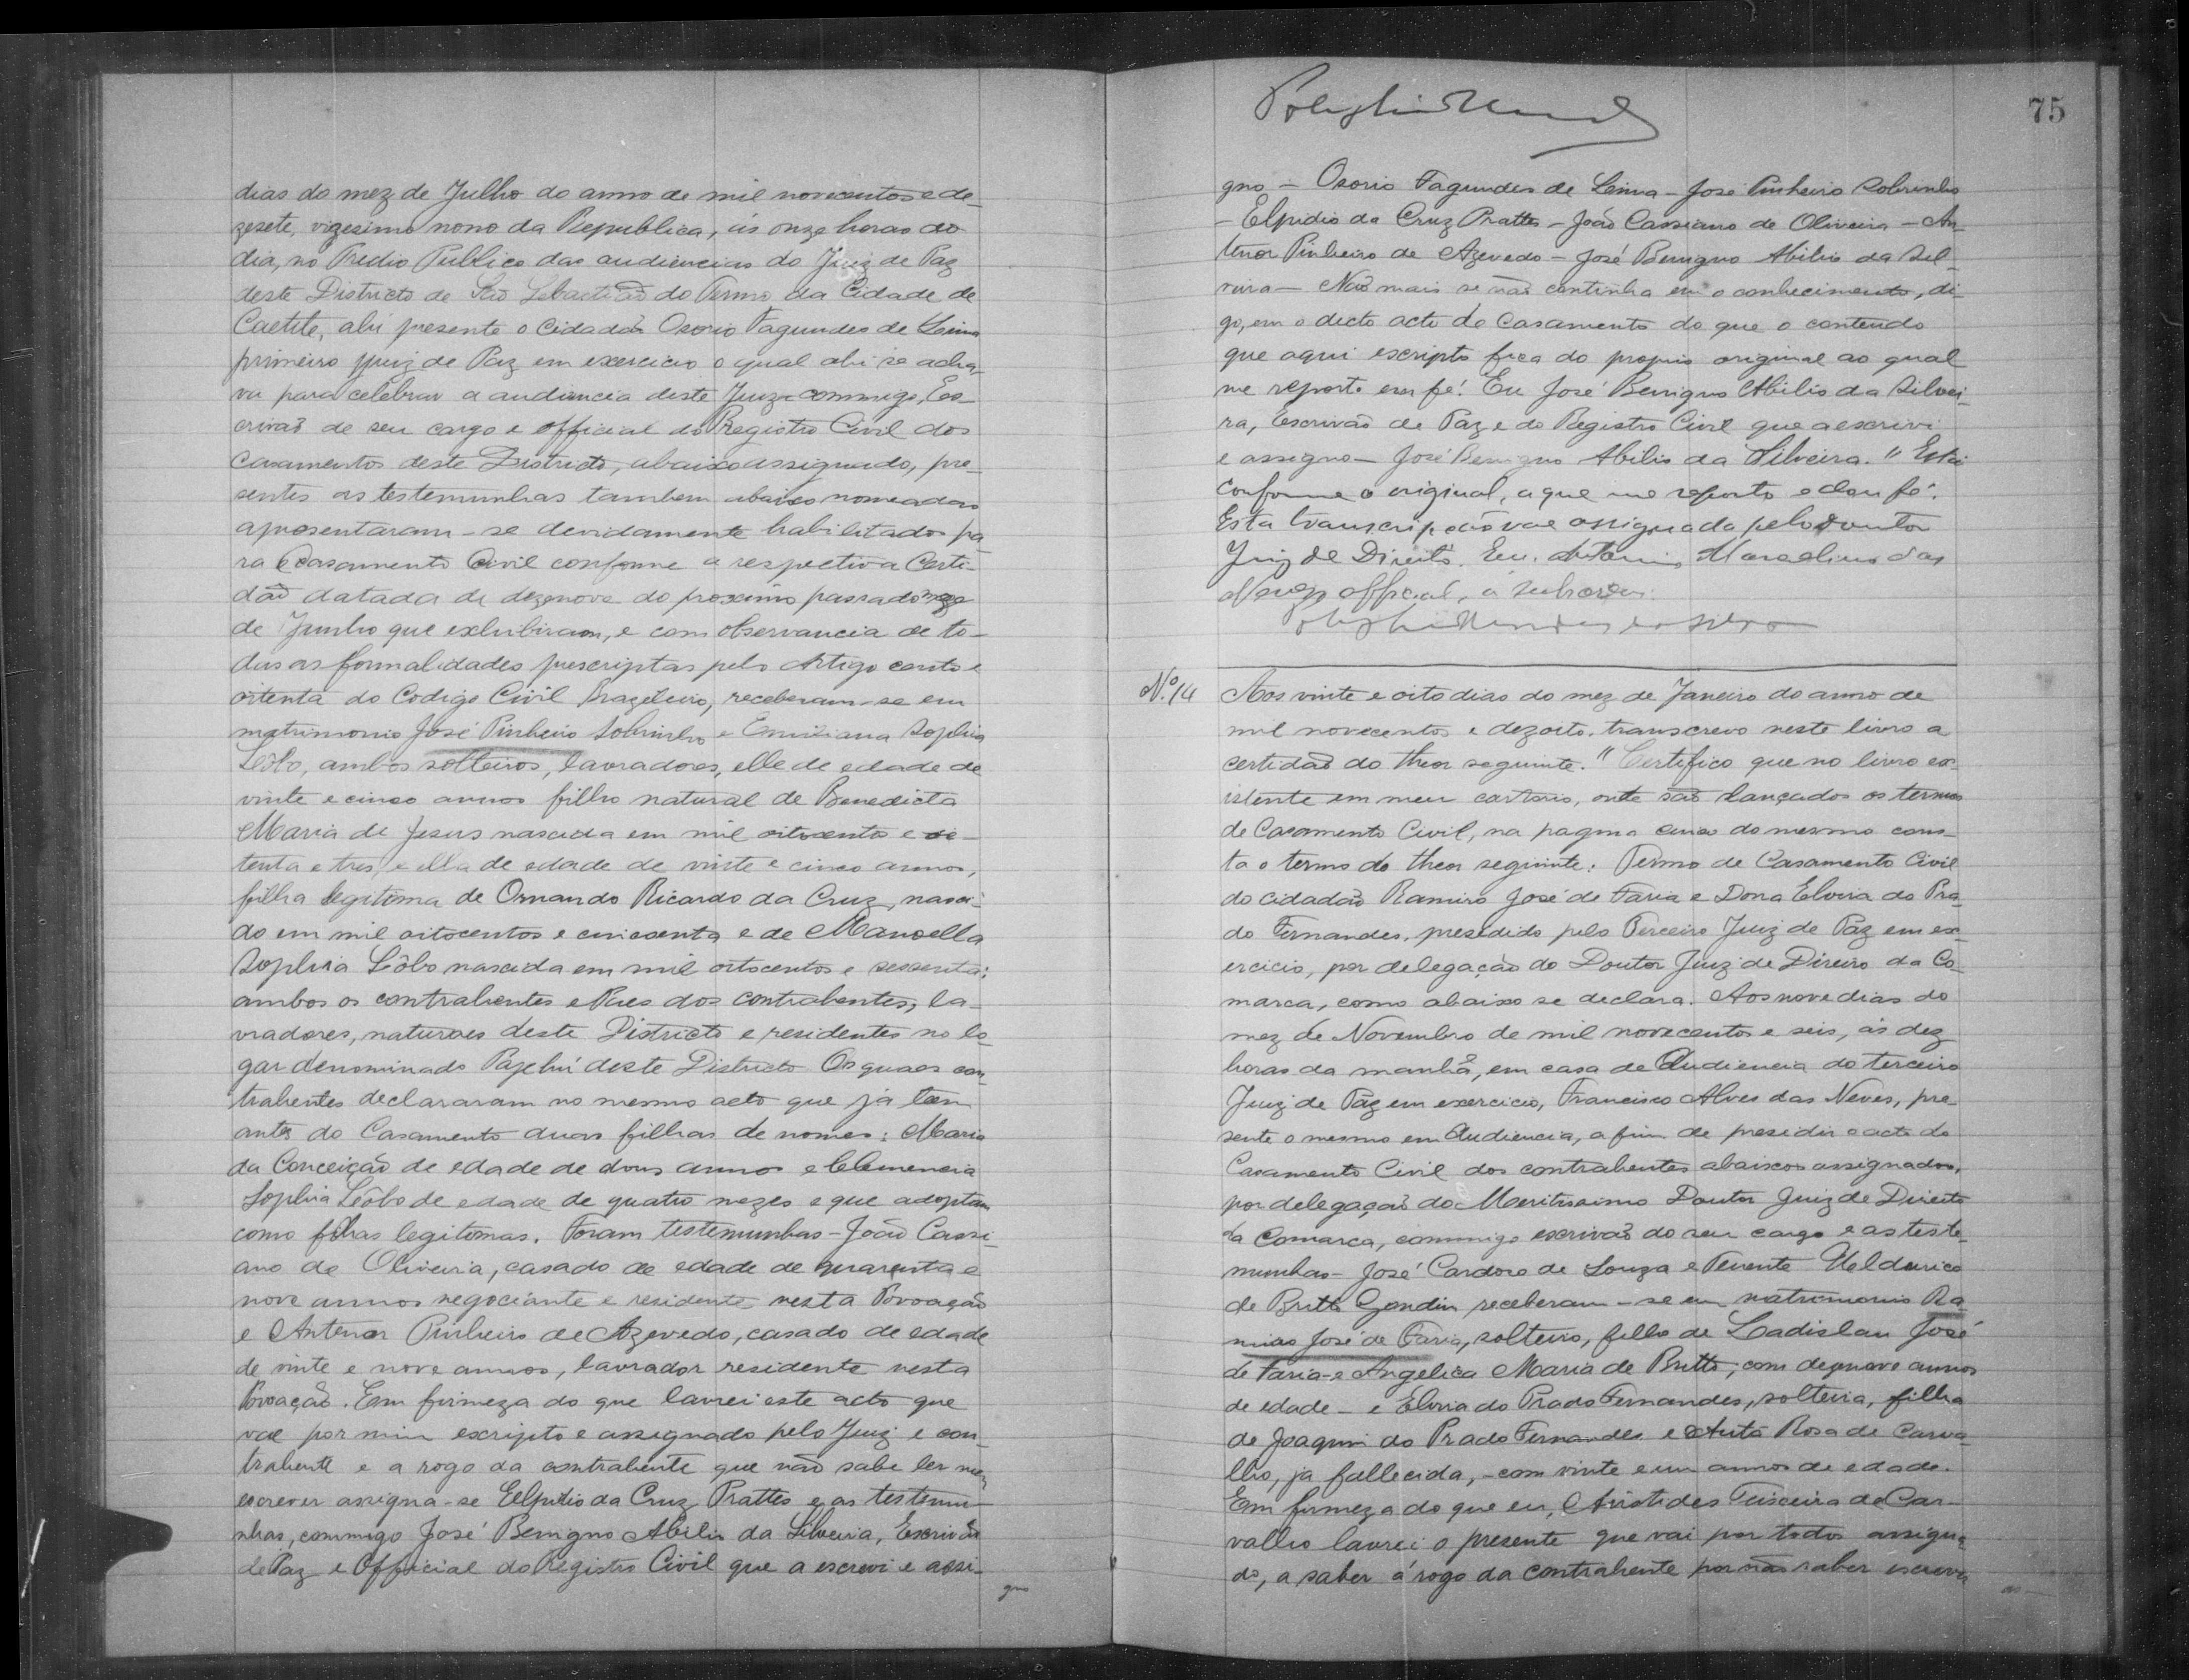 dias do mez de Julho do anno de mil novecentos e de-
zesete, vigesimo nono da Republica, ás onze horas do
dia, no Predio Publico das audiencias do Juiz de Paz
deste Districto de São Sebastião do Termo da Cidade de
Caetite, ahi presente o Cidadão Osorio Fagundes de Lima
primeiro Juiz de Paz em exercicio o qual ahi se acha-
va para celebrar a audiencia deste Juizo commigo, Es-
crivão de seu cargo e official do Registro Civil dos
casamentos deste Districto, abaixo assignado, pre-
sentes as testemunhas tambem abaixo nomeadas
apresentaram-se devidamente habilitados pa-
ra o casamento Civil conforme a respectiva Certi-
dão datada de dezenove do proximo passado mez
de Junho que exhibiram, e com observancia de to-
das as formalidades prescriptas pelo Artigo cento e
oitenta do Codigo Civil Brazileiro, receberam-se em
matrimonio José Pinheiro Sobrinho e Emiliana Sophia
Leôbo, ambos solteiros, lavradores, elle de edade de
vinte e cinco annos filho natural de Benedicta
Maria de Jesus nascida em mil oitocento e se-
tenta e tres, e ella de edade de vinte e cinco annos,
filha legitima de Ornando Ricardo da Cruz, nasci-
do em mil oitocentos e cincoenta e de Manoella
Sophia Leôbo nascida em mil oitocentos e sessenta:
ambos os contrahentes e Paes dos contrahentes, la-
vradores, naturaes deste Districto e residentes no lo-
gar denominado Pajehú deste Districto Os quaes con-
trahentes declararam no mesmo acto que já tem
antes do Casamento duas filhas de nomes: Maria
da Conceição de edade de dous annos e Clemencia
Sophia Leôbo de edade de quatro mezes e que adoptam
como filhas legitimas. Foram testemunhas - João Cassi-
ano de Oliveira, casado de edade de quarenta e
nove annos negociante e residente nesta Povoação
e Antenor Pinheiro de Azevedo, casado de edade
de vinte e nove annos, lavrador residente nesta
Povoação. Em firmeza do que lavrei este acto que
vae por mim escripto e assignado pelo Juiz e con-
trahente e a rogo da contrahente que não sabe ler nem
escrever assigna-se Eelpidio da Cruz Prattes e as testemu-
nhas, commigo José Benigno Abilio da Silveira, Escrivão
de Paz e Official do Registro Civil que a escrevi e assi-
gno
75
gno - Osorio Fagundes de Lima - José Pinheiro Sobrinho
- Elpidio da Cruz Prattes - João Cassiano de Oliveira - An-
tenor Pinheiro de Azevedo - José Benigno Abilio da Sil-
veira - Nada mais se não continha em o conhecimento, di-
go, em o dicto acto de Casamento do que o contendo
que aqui escripto fica do proprio original ao qual
me reporto em fé. Eu José Benigno Abilio da Silvei-
ra, Escrivão de Paz e do Registro Civil que a escrivi
e assigno - José Benigno Abilio da Silveira. " Está
conforme o original, a que me reporto e dou fé.
Esta transcripção vae assignada pelo doutor
Juiz de Direito. Eu. Antonio Marcelino das
Neves official, a subscrevi.
N.º 14 Aos vinte e oito dias do mez de Janeiro do anno de
mil novecentos e dezoito, transcrevo neste livro a
certidão do theor seguinte. "Certifico que no livro ex-
istente em meu cartorio, onde são lançados os termos
de Casamento Civil, na pagina cinco do mesmo cons-
ta o termo do theor seguinte: Termo de Casamento Civil
do cidadão Ramiro José de Faria e Dona Elvira do Pra-
do Fernandes, presedido pelo Terceiro Juiz de Paz em ex-
ercicio, por delegação do Doutor Juiz de Direiro da Co-
marca, como abaixo se declara. Aos nove dias do
mez de Novembro de mil novecentos e seis, ás dez
horas da manhã, em casa de Audiencia do terceiro
Juiz de Paz em exercicio, Francisco Alves das Neves, pre-
sente o mesmo em Audiencia, a fim de presidir o acto do
Casamento Civil dos contrahentes abaixos assignados,
por delegação do Meritissimo Doutor Juiz de Direito
da Comarca, commigo escrivão do seu cargo e as teste-
munhas - José Cardoso de Souza e Tenente Uldarico
de Britto Gondin receberam-se em matrimonio Ra-
miro José de Faria, solteiro, filho de Ladislau José
de Faria e Angelica Maria de Britto, com dezenove annos
de edade - e Elvira do Prado Fernandes, solteira, filha
de Joaquim do Prado Fernandes e Auta Rosa de Carva-
lho, já fallecida, - com vinte e um annos de edade.
Em firmeza do que eu, Aristides Teixeira de Car-
valho lavrei o presente que vai por todos assigna-
do, a saber á rogo da contrahente por não saber escrever
as